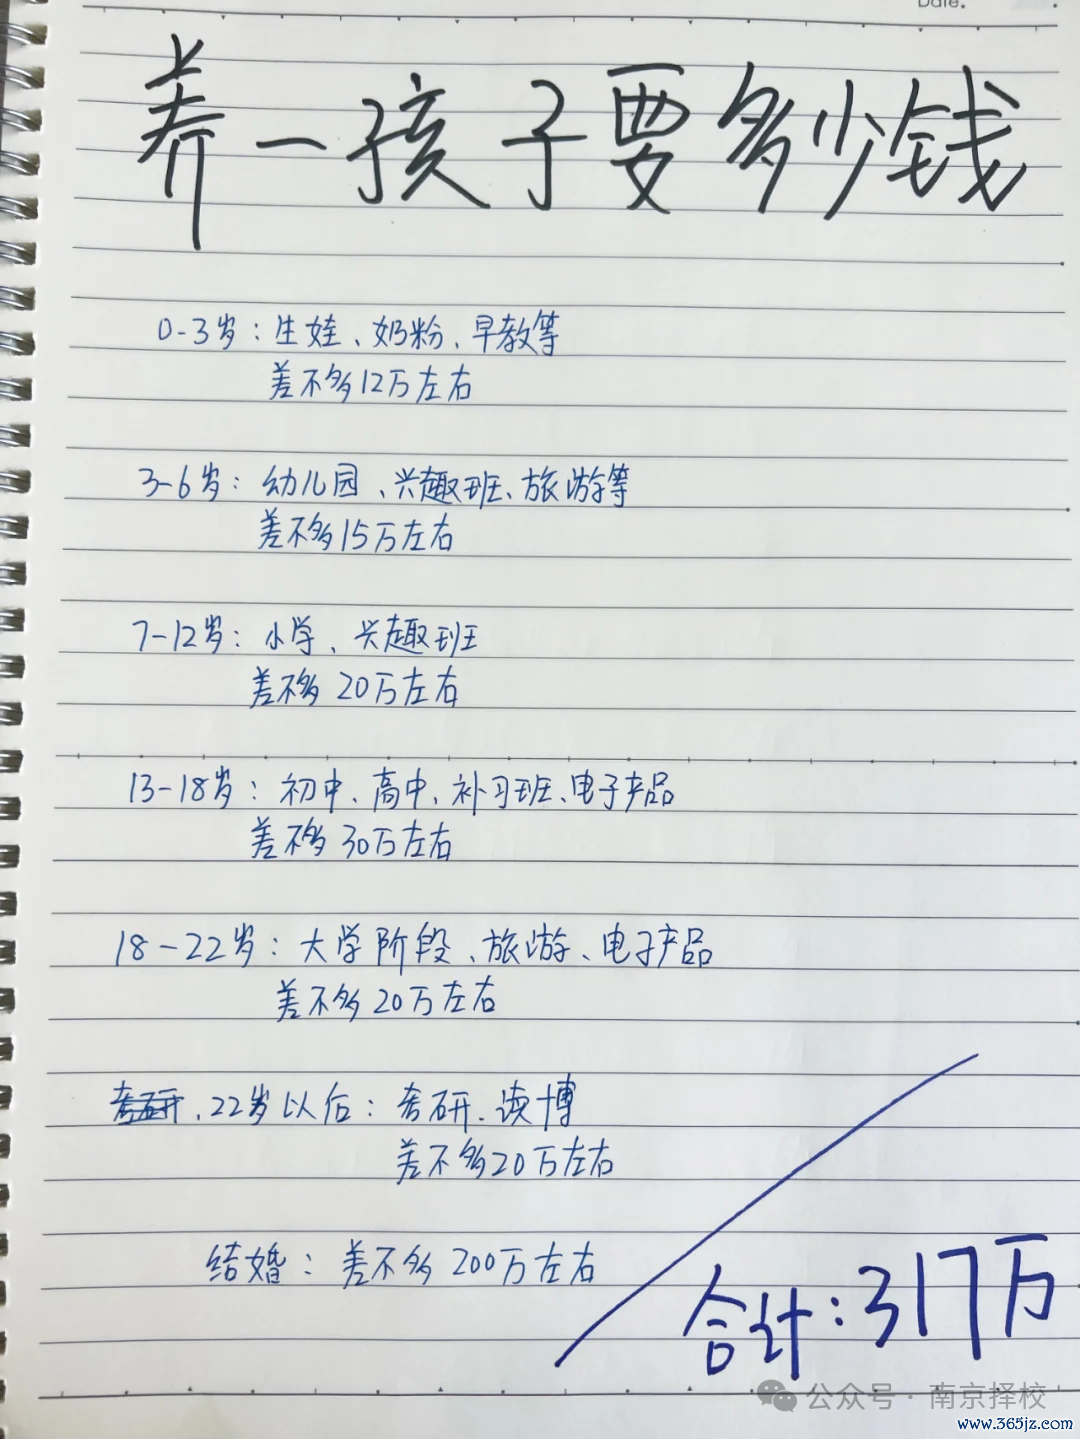 Date.
养一孩子要多少钱
0-3岁：生娃、奶粉、早教等
差不多12万左右
3-6岁：幼儿园、兴趣班、旅游等
差不多15万左右
7-12岁：小学、兴趣班
差不多 20万左右
13-18岁：初中、高中、补习班、电子产品
差不多 30万左右
18-22岁：大学阶段、旅游、电子产品
差不多20万左右
考研、22岁以后：考研、读博
差不多20万左右
结婚：差不多 200万左右
合计：317万
公众号·南京择校
www.365jz.com